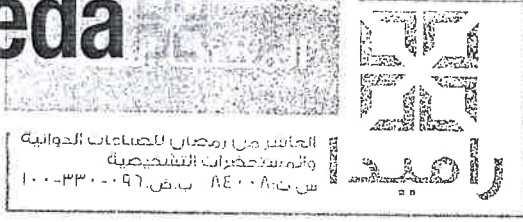 eda
راميدا
العاشر من رمضان للصناعات الدوائية
والمستحضرات التشخيصية
س.ت: ٨٤٠٠٨ ب.ض: ٠٩٦-٣٣٠-١٠٠